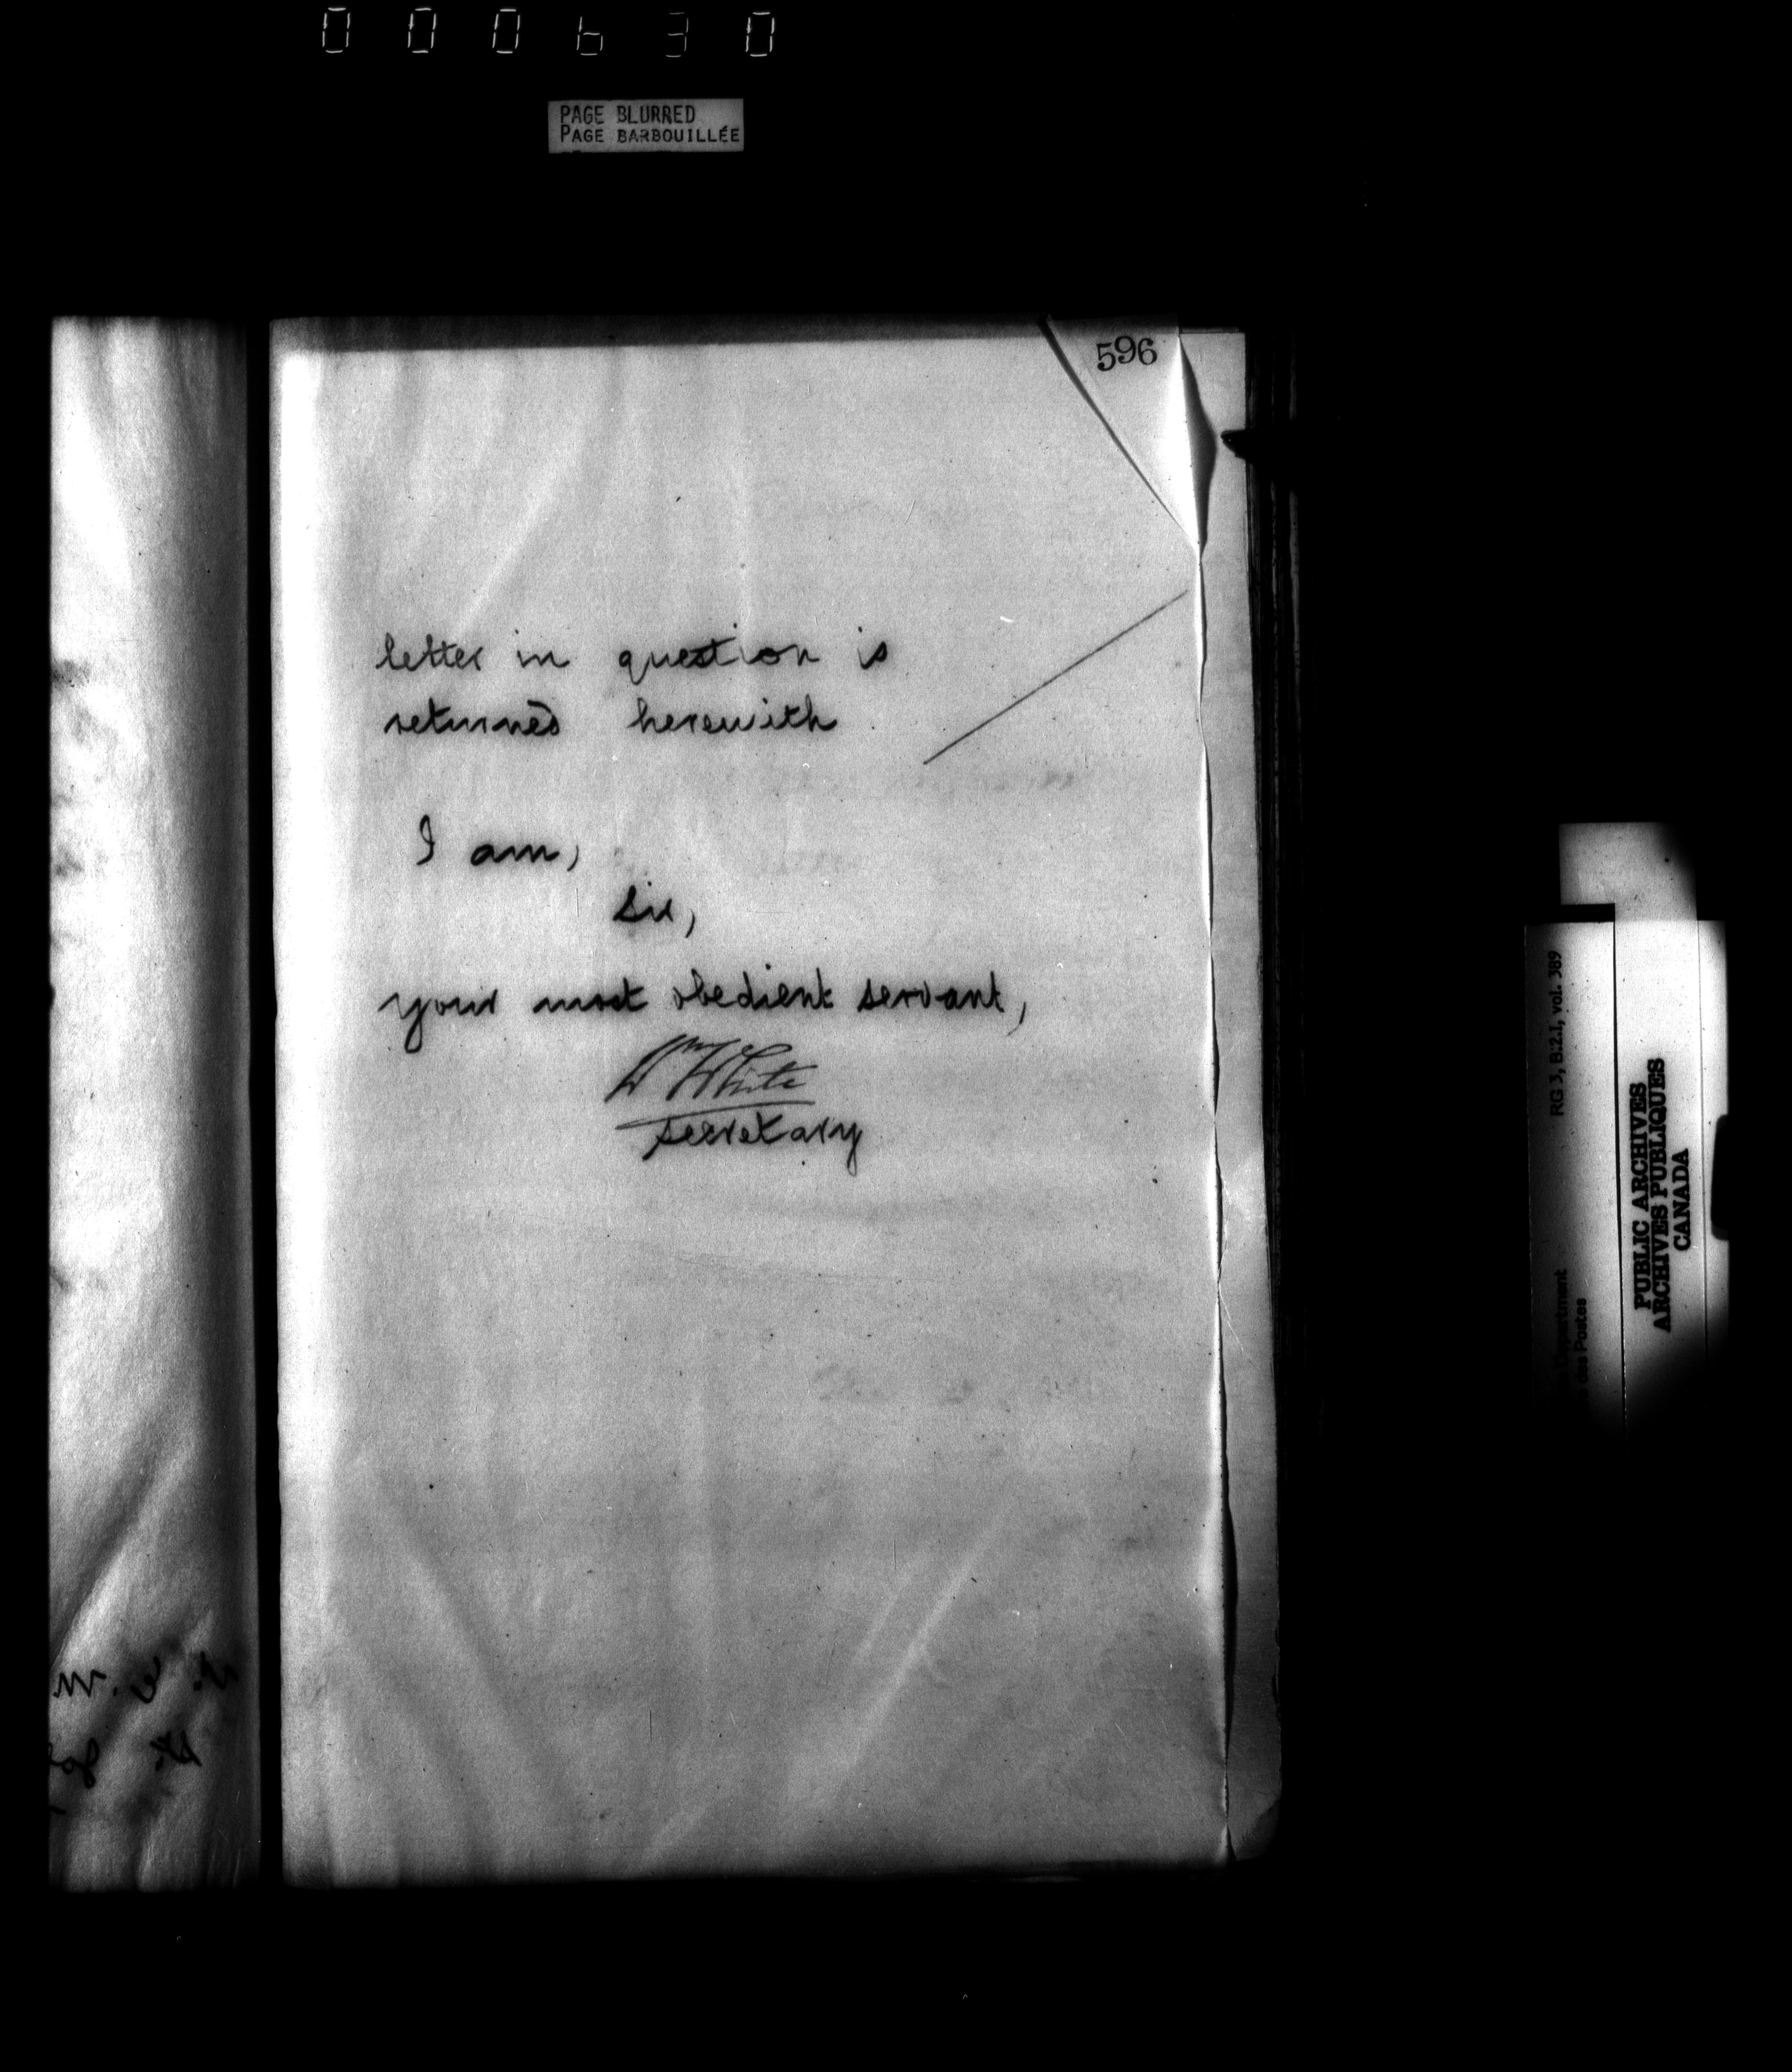 000630
PAGE BLURRED
PAGE BARBOUILLÉE
596
letter in question is
returned herewith
I am,
Sir,
your most obedient servant,
Wm White
Secretary
RG 3, B.2.I, vol. 389
Department
des Postes
PUBLIC ARCHIVES
ARCHIVES PUBLIQUES
CANADA